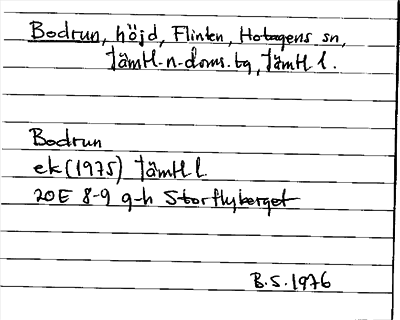 Bodrun, höjd, Flinten, Hotagens sn,
Jämtl-n-doms.tg, Jämtl l.
Bodrun
ek (1975) Jämtl l.
20E 8-9 g-h Storflyberget
B.S. 1976